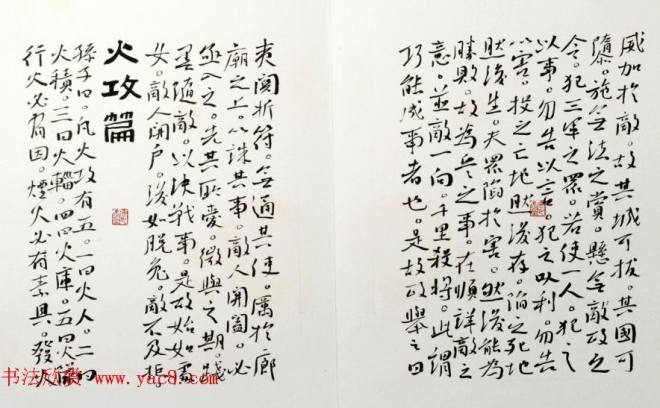 威加於敵。故其城可拔。其國可
隳。施無法之賞。懸無政之
令。犯三軍之眾。若使一人。犯之
以事。勿告以言。犯之以利。勿告
以害。投之亡地然後存。陷之死地
然後生。夫眾陷於害。然後能為
勝敗。故為兵之事。在順詳敵之
意。並敵一向。千里殺將。此謂
巧能成事者也。是故政舉之日
夷關折符。無通其使。厲於廊
廟之上。以誅其事。敵人開闔。必
亟入之。先其所愛。微與之期。踐
墨隨敵。以決戰事。是故始如處
女。敵人開戶。後如脫兔。敵不及拒。
火攻篇
孫子曰。凡火攻有五。一曰火人。二曰
火積。三曰火輜。四曰火庫。五曰火隊。
行火必有因。煙火必有素具。發
书法欣赏 www.yac8.com